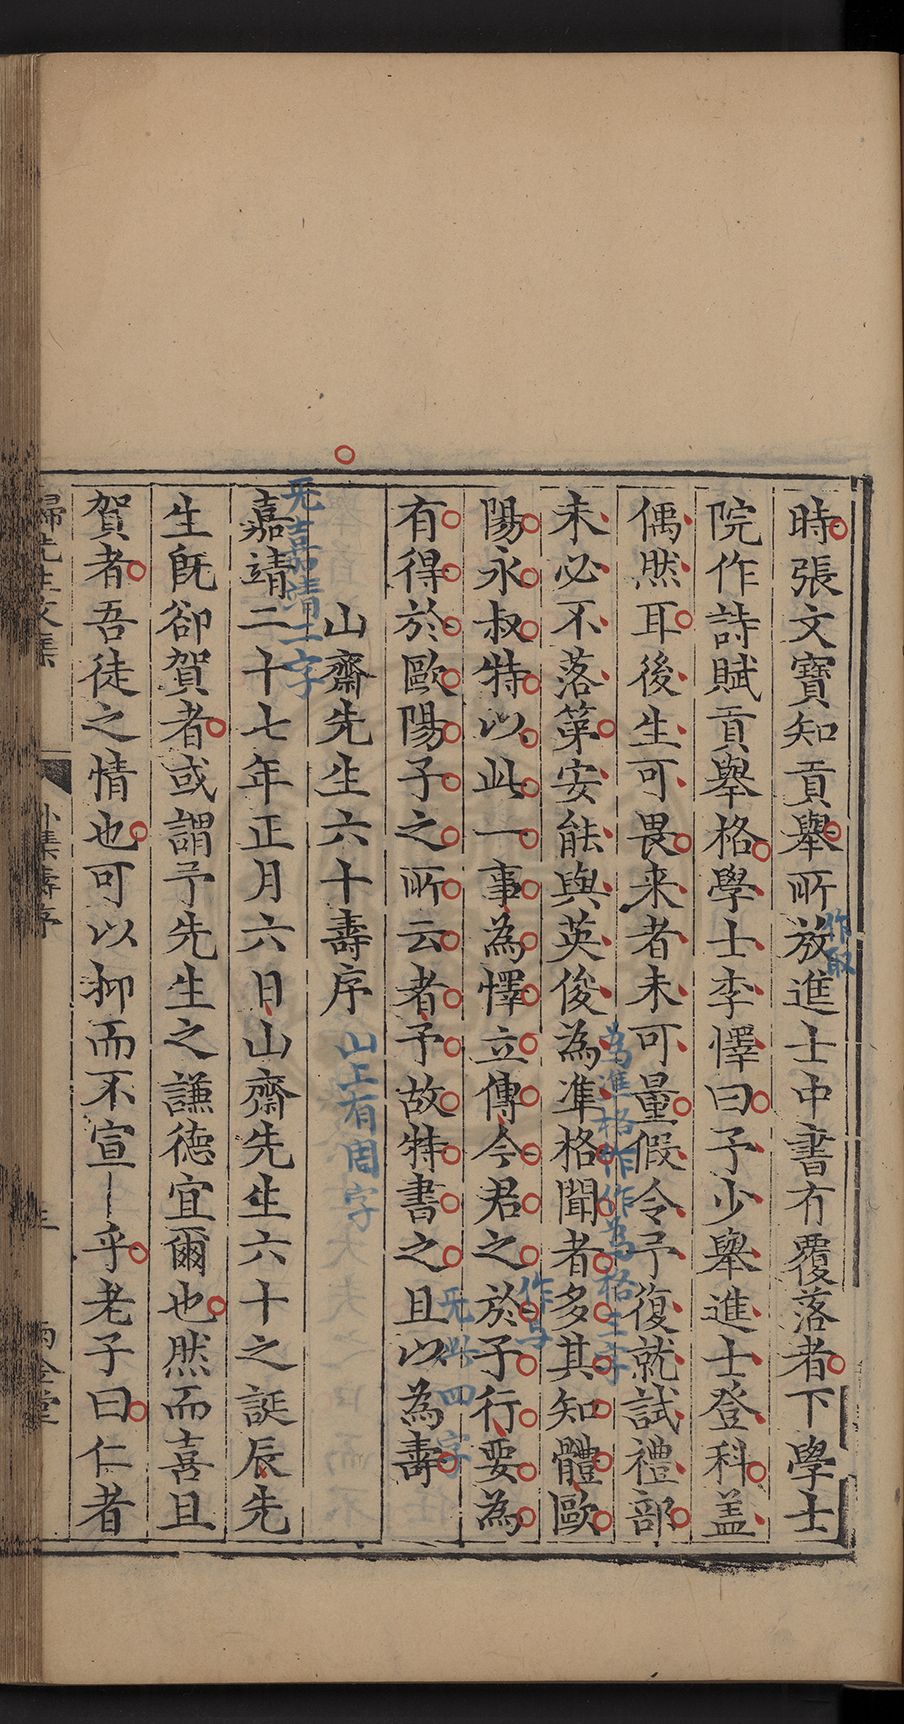 時張文寶知貢舉所放進士中書有覆落者下學士
作取
院作詩賦貢舉格學士李懌曰予少舉進士登科盖
偶然耳後生可畏来者未可量假令予復就試禮部
為準格作作為格三字
未必不落第安能與英俊為準格聞者多其知體歐
作与
陽永叔特以此一事為懌立傳今君之於予行要為
无此四字
有得於歐陽子之所云者予故特書之且以為壽
山齋先生六十壽序
山上有周字
无嘉靖二字
嘉靖二十七年正月六日山齋先生六十之誕辰先
生旣卻賀者或謂予先生之謙德宜爾也然而喜且
賀者吾徒之情也可以抑而不宣乎老子曰仁者
歸先生文集
外集壽序